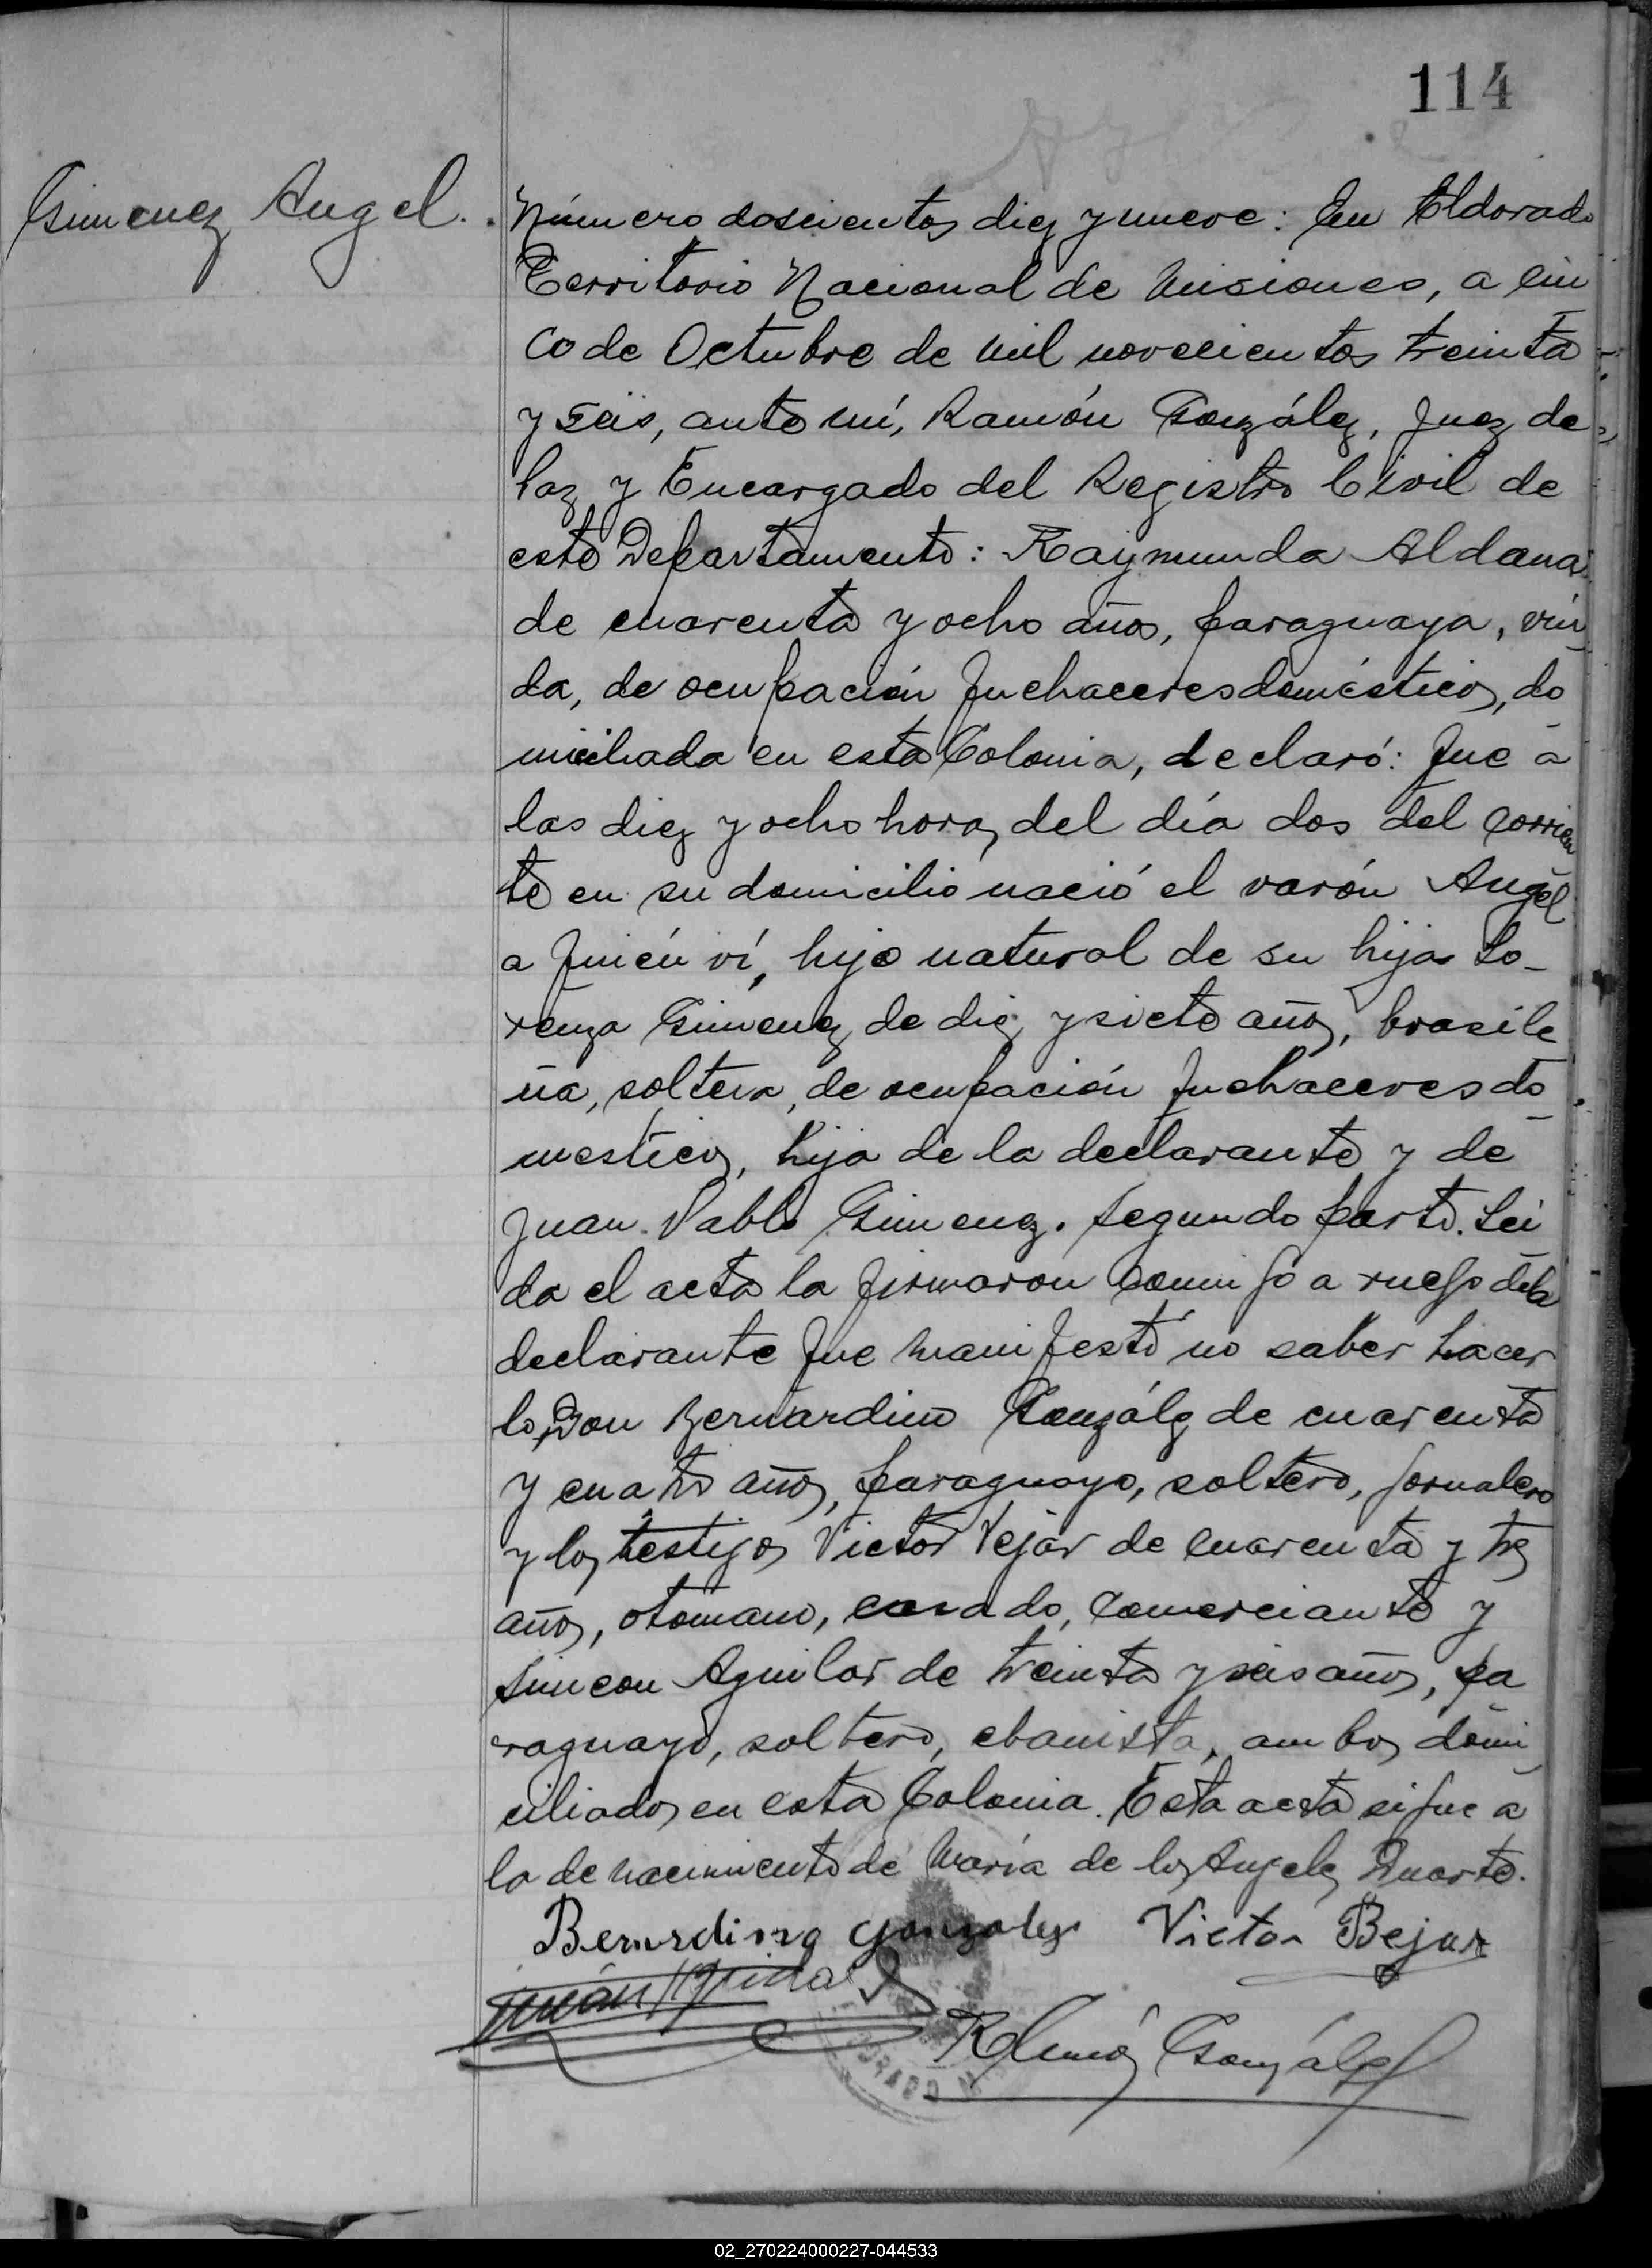 114
Gimenez Angel.
Número doscientos diez y nueve: En Eldorado
Territorio Nacional de Misiones, a cin
co de Octubre de mil novecientos treinta
y seis, ante mí, Ramón González, Juez de
Paz y Encargado del Registro Civil de
este Departamento: Raymunda Aldana
de cuarenta y ocho años, paraguaya, viu
da, de ocupación quehaceres domésticos, do
miciliada en esta Colonia, declaró: Que a
las diez y ocho horas del día dos del corrien
te en su domicilio nació el varón Angel
a quién ví, hijo natural de su hija Lo-
renza Gimenez de diez y siete años, brasile
ña, soltera, de ocupación quehaceres do
mesticos, hija de la declarante y de
Juan Pablo Gimenez. Segundo parto. Leí
da el acta la firmaron conmigo a ruego de la
declarante que manifestó no saber hacer
lo, Don Bernardino González de cuarenta
y cuatro años, paraguayo, soltero, jornalero
y los testigos Victor Vejar de cuarenta y tres
años, otomano, casado, comerciante y
Simeon Aguilar de treinta y seis años, pa
raguayo, soltero, ebanista, ambos domi
ciliados en esta Colonia. Esta acta sigue a
la de nacimiento de María de los Angeles Duarte.
Bernardino Gonzalez Victor Bejar
Ramón González
02_270224000227-044533